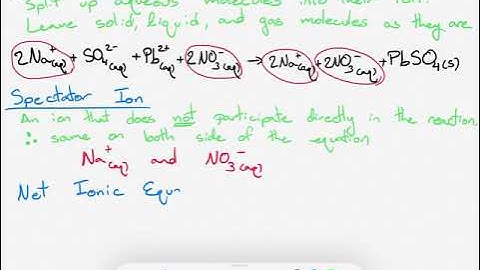 Split up aqueous molecules into their ion.
Leave solid, liquid, and gas molecules as they are
2Na⁺(aq) + SO₄²⁻(aq) + Pb²⁺(aq) + 2NO₃⁻(aq) → 2Na⁺(aq) + 2NO₃⁻(aq) + PbSO₄(s)
Spectator Ion
An ion that does not participate directly in the reaction
∴ same on both side of the equation
Na⁺(aq) and NO₃⁻(aq)
Net Ionic Equ